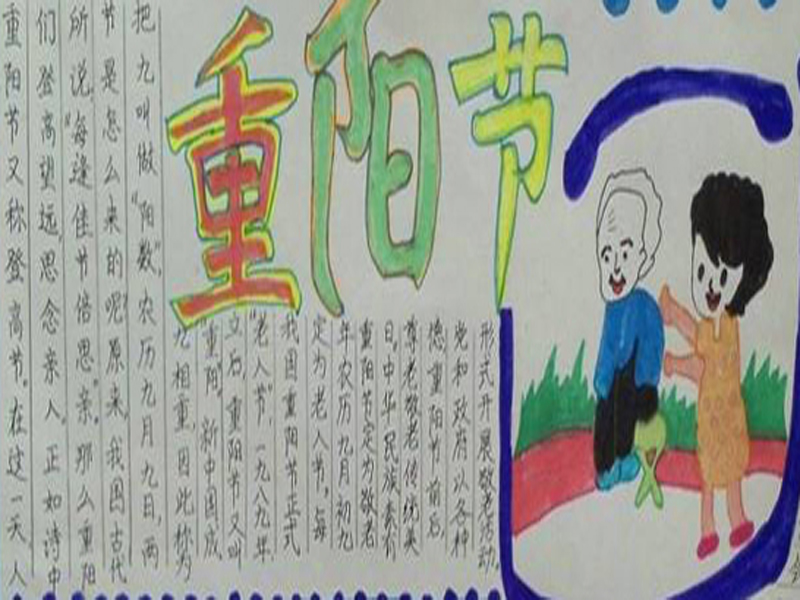 重阳节
重阳节又称登高节。在这一天,人
们登高望远,思念亲人。正如诗中
所说,“每逢佳节倍思亲”。那么重阳
节是怎么来的呢?原来,我国古代
把九叫做“阳数”,农历九月九日,两
九相重,因此称为
“重阳”。新中国成
立后,重阳节又叫
“老人节”。一九八九年
我国重阳节正式
定为老人节。每
年农历九月初九
重阳节定为敬老
日。中华民族素有
尊老敬老传统美
德,重阳节前后,
党和政府以各种
形式开展敬老活动.